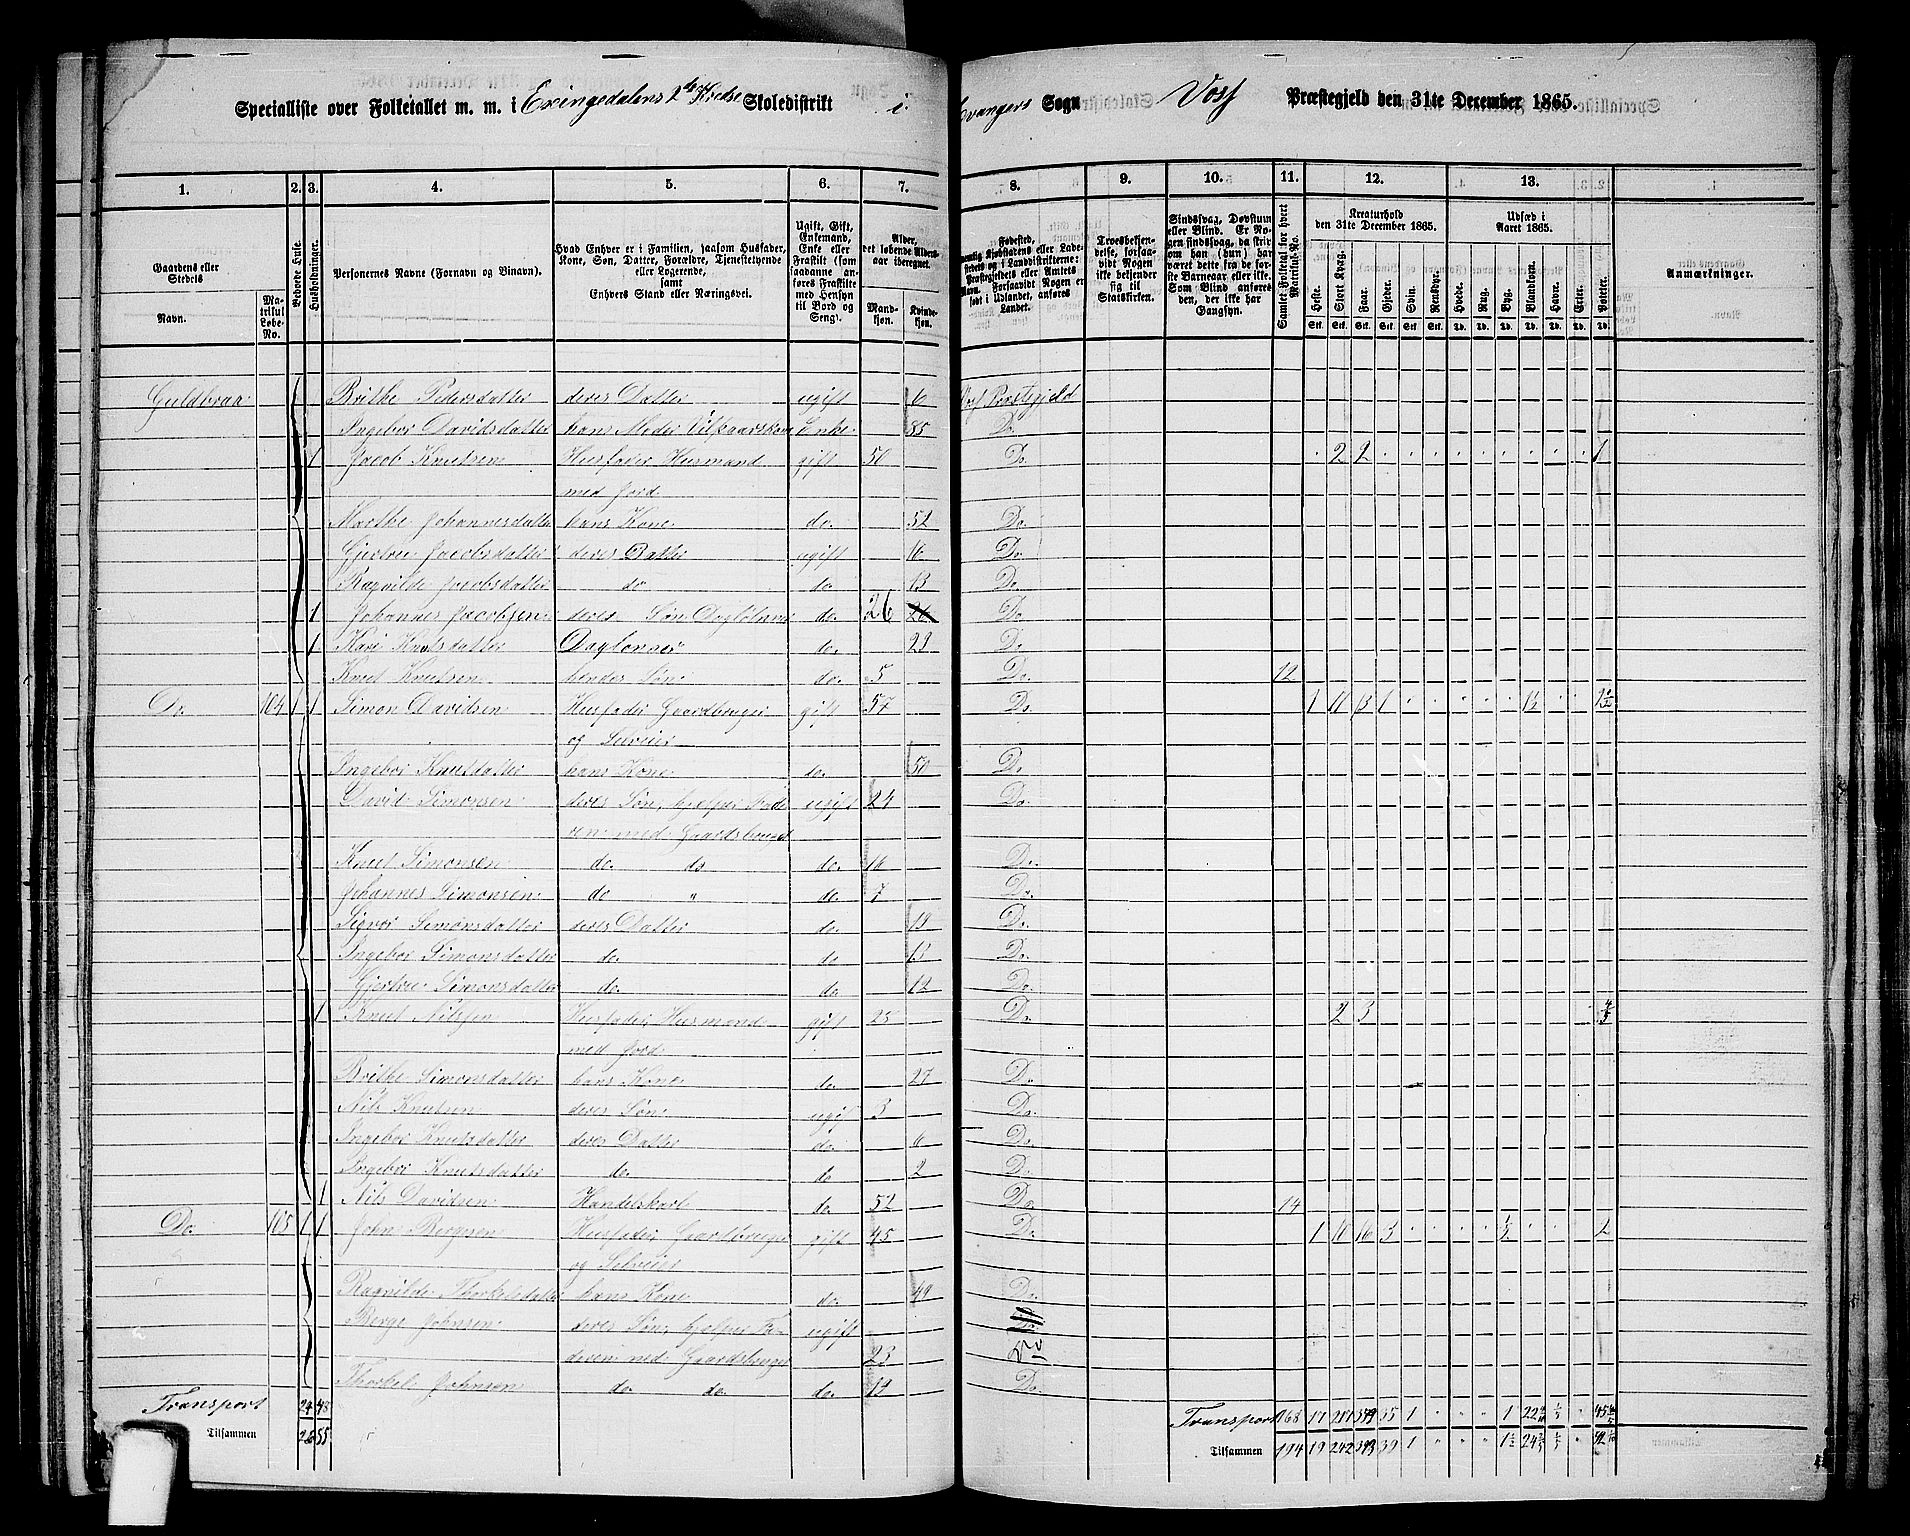 Specialliste over Folketallet m. m. i Exingedalens 2de Kreds Skoledistrikt i Evangers Sogn Voss Præstegjeld den 31te December 1865.
1. 2. 3. 4. 5. 6. 7. 8. 9. 10. 11. 12. 13.
Gaardens eller Stedets
Navn.
Matrikul Løbe-No.
Beboede Huse.
Husholdninger.
Personernes Navne (Fornavn og Binavn).
Hvad Enhver er i Familien, saasom Husfader, Kone, Søn, Datter, Forældre, Tjenestetyende eller Logerende, samt Enhvers Stand eller Næringsvei.
Ugift, Gift, Enkemand, Enke eller Fraskilt (som saadanne anføres Fraskilte med Hensyn til Bord og Seng).
Alder, det løbende Alders-aar iberegnet.
Mandkjøn. Kvindekjøn.
Troesbekjendelse, forsaavidt Nogen ikke bekjender sig til Statskirken.
Sindssvag, Døvstum eller Blind.
Samlet Folketal for hvert Matrikul-No.
Kreaturhold den 31te December 1865.
Heste. Stort Kvæg. Faar. Gjeder. Svin. Rensdyr.
Udsæd i Aaret 1865.
Hvede. Rug. Byg. Blandkorn. Havre. Erter. Poteter.
Anmærkninger.
Guldbraa Brithe Pedersdatter deres Datter ugift 6 Voss Præstegjeld
Ingebor Davidsdatter hans Moder Enke 85 Do.
1 Jacob Knutsen Husfader Husmand gift 50 Do. 2 2 1
med Jord
Marthe Johannesdatter hans Kone do. 52 Do.
Gjertrue Jacobsdatter deres Datter ugift 16 Do.
Ragnilde Jacobsdatter do do. 13 Do.
1 Johannes Jacobsen deres Søn Dagløner do. 26 Do.
1 Kari Knutsdatter Dagløner do. 29 Do.
Knut Knutsen hendes Søn do. 5 Do. 12
Do. 104 1 1 Simon Davidsen Husfader Gaardbruger gift 57 Do. 1 11 13 1
og Selveier
Ingebor Knutsdatter hans Kone do. 50 Do.
David Simonsen deres Søn, hjelper Fade ugift 24 Do.
ren med Gaardsbruget
Knut Simonsen do. do do. 16 Do.
Johannes Simonsen do " do. 7 Do.
Signor Simonsdatter deres Datter do. 19 Do.
Ingebor Simonsdatter do. do. 13 Do.
Gjertrue Simonsdatter do. do. 12 Do.
1 Knut Nilssen Husfader, Husmand gift 25 Do. 2 3
med Jord
Brithe Simonsdatter hans Kone do. 27 Do.
Nils Knutsen deres Søn ugift 3 Do.
Ingebor Knutsdatter deres Datter do. 6 Do.
Ingebor Knutsdatter do. do 2 Do.
1 Nils Davidsen Handelskarl do. 52 Do. 14
Do. 105 1 1 John Bergesen Husfader Gaardbruger gift 45 Do. 1 10 16 3 2
og Selveier
Ragnilde Thorkelsdatter hans Kone do. 49 Do.
Berge Johnsen deres Søn, hjelper Fa- ugift
deren med Gaardsbruget 23 Do
Thorkel Johnsen do. do. do. 19 Do.
Transport 24 48 Transport 168 17 35 1 " " " 1
Tilsammen 26 55 Tilsammen 194 19 242 39 1 " " "